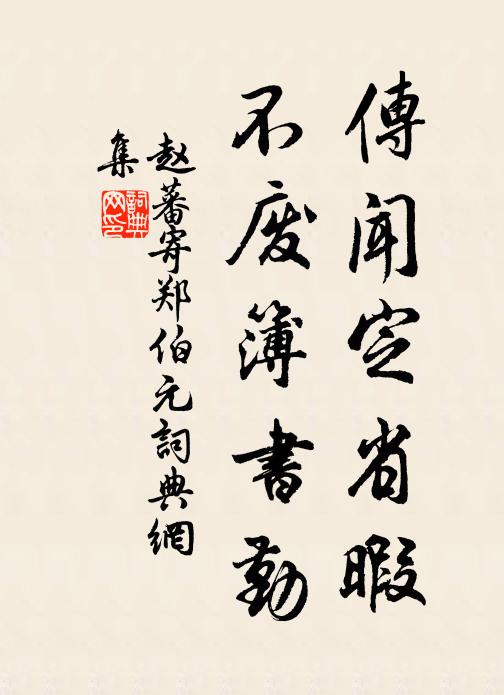 傳聞定省暇
不废簿書勤
赵蕃寄郑伯元詞典網
集
詞典
网印